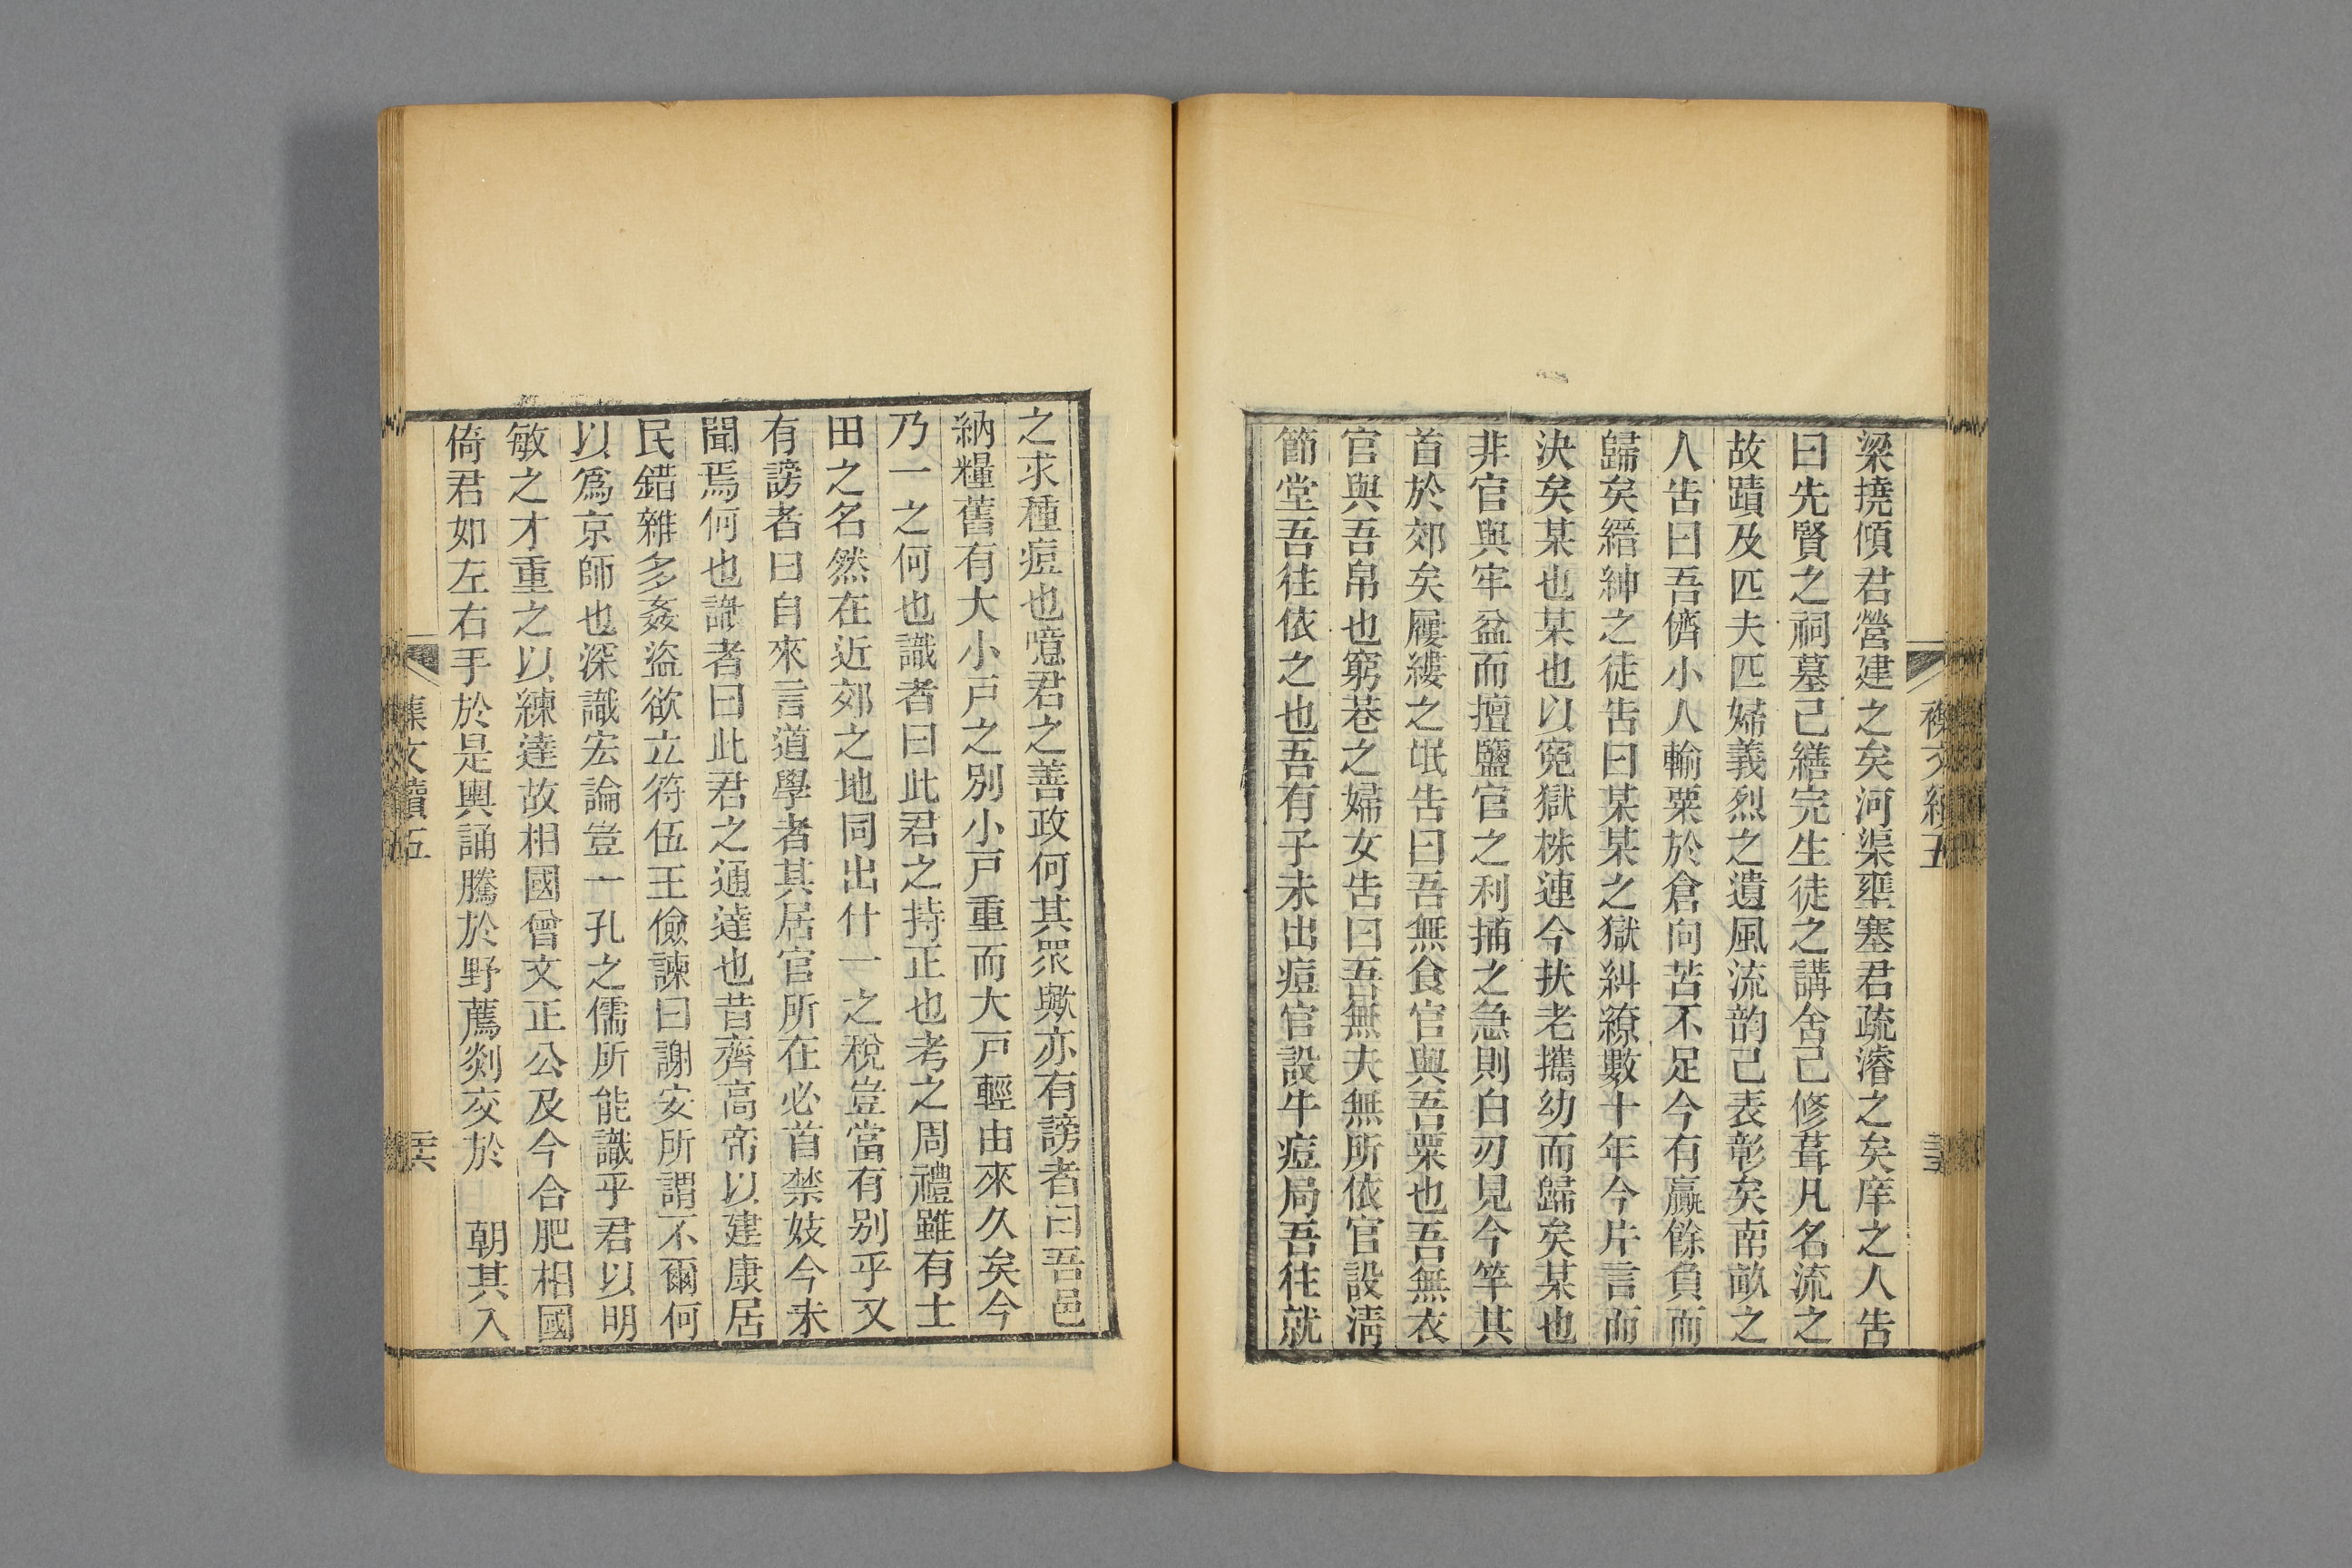 梁撓傾君營建之矣河渠壅塞君疏濬之矣庠之人告
曰先賢之祠墓己繕完生徒之講舍己修葺凡名流之
故蹟及匹夫匹婦義烈之遺風流韵己表彰矣南畝之
人告曰吾儕小人輸粟於倉向苦不足今有贏餘負而
歸矣縉紳之徒告曰某某之獄糾繚數十年今片言而
決矣某也某也以冤獄株連今扶老攜幼而歸矣某也
非官與牢盆而擅鹽官之利捕之急則白刃見今竿其
首於郊矣屨縷之氓告曰吾無食官與吾粟也吾無衣
官與吾帛也窮巷之婦女告曰吾無夫無所依官設淸
節堂吾往依之也吾有子未出痘官設牛痘局吾往就
之求種痘也噫君之善政何其眾歟亦有謗者曰吾邑
納糧舊有大小戸之別小戸重而大戸輕由來久矣今
乃一之何也識者曰此君之持正也考之周禮雖有士
田之名然在近郊之地同出什一之稅豈當有別乎又
有謗者曰自來言道學者其居官所在必首禁妓今未
聞焉何也識者曰此君之通達也昔齊高帝以建康居
民錯雜多姦盜欲立符伍王儉諫曰謝安所謂不爾何
以爲京師也深識宏論豈一孔之儒所能識乎君以明
敏之才重之以練達故相國曾文正公及今合肥相國
倚君如左右手於是輿誦騰於野薦剡交於　朝其入